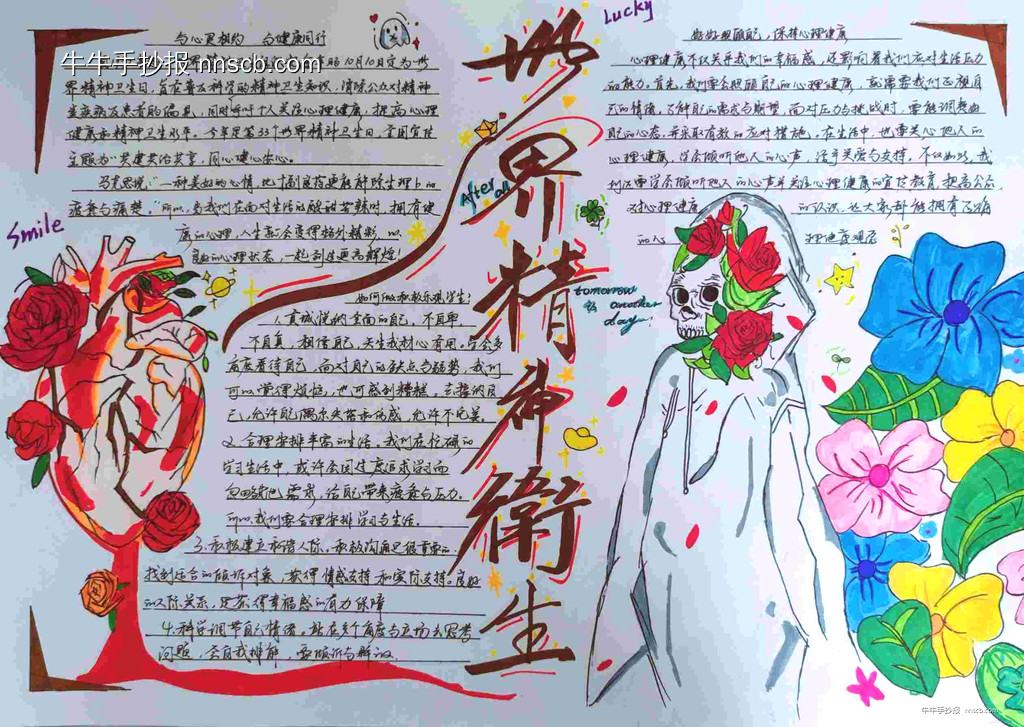 与心灵相约 与健康同行
牛牛手抄报 nnscb.com
10月10日定为“世
界精神卫生日,旨在普及科学的精神卫生知识,消除公众对精神
健康和精神卫生水平。今年是第33个世界精神卫生日,全国宣传
主题为“共建共治共享,同心健心安心。
马克思说:“一种美好的心情,比十副良药更能解除生理上的
疲惫与痛楚。”所以,当我们在面对生活的酸甜苦辣时,拥有健
康的心理,人生就会变得格外精彩,以
良好的心理状态,一起创造更高辉煌!
如何做积极乐观学生?
1.真诚悦纳全面的自己,不自卑
不自负,相信自己,天生我材必有用,学会多
角度看待自己,面对自己的缺点与弱势,我们
可以懂得放松,也可感到糟糕,去接纳自
己,允许自己偶尔失落和伤感,允许不完美。
2.合理安排丰富的生活。我们在忙碌的
学习生活中,或许会因过度追求学习而
忽略其他需求,给自己带来疲惫与压力。
所以我们要合理安排学习与生活。
3.积极建立和谐人际,积极沟通是很重要的.
找到适合的倾诉对象,获得情感支持和实际支持。良好
的人际关系,是获得幸福感的有力保障
4.科学调节自己情绪。站在多个角度与立场去思考
问题,会自我排解,要倾诉与解决.
世界精神衛生
Smile
Lucky
After all
tomorrow
is another
day.
好好照顾自己,保持心理健康
心理健康不仅关乎我们的幸福感,还影响着我们应对生活压力
的能力。首先,我们要会照顾自己的心理健康,就需要我们正视自
己的情绪,了解自己的需求与期望,面对压力与挑战时,要能调整好
自己的心态,并采取有效的应对措施。在生活中,也要关心他人的
心理健康,学会倾听他人的心声,给予关爱与支持。不仅如此,我
们还要学会倾听他人的心声并关注心理健康的宣传教育,提高公众
对心理健康 的认识,让大家都能拥有正确
的心 理健康观念
牛牛手抄报 nnscb.com